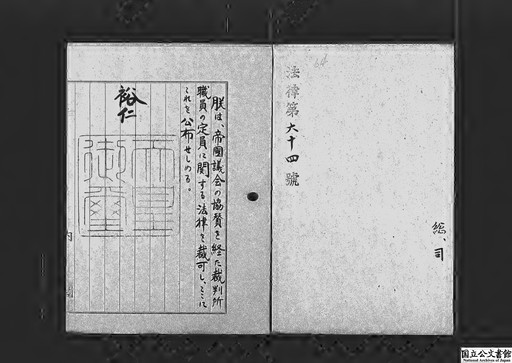 法律第六十四號
総、司
朕は、帝國議会の協賛を経た裁判所
職員の定員に関する法律を裁可し、ここに
これを公布せしめる。
裕仁
天皇
御璽
内
国立公文書館
National Archives of Japan